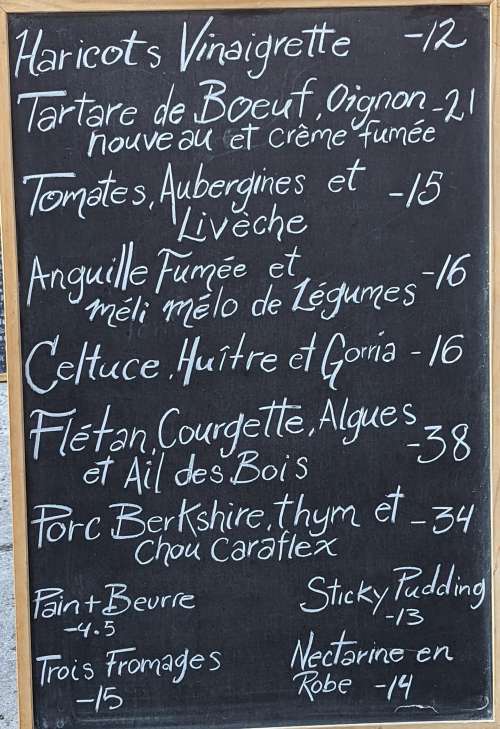 Haricots Vinaigrette -12
Tartare de Boeuf, Oignon -21
nouveau et crème fumée
Tomates, Aubergines et -15
Livèche
Anguille Fumée et -16
méli mélo de Légumes
Celtuce, Huître et Gorria -16
Flétan, Courgette, Algues
et Ail des Bois -38
Porc Berkshire, thym et -34
chou caraflex
Pain + Beurre
-4.5
Sticky Pudding
-13
Trois Fromages
-15
Nectarine en
Robe -14